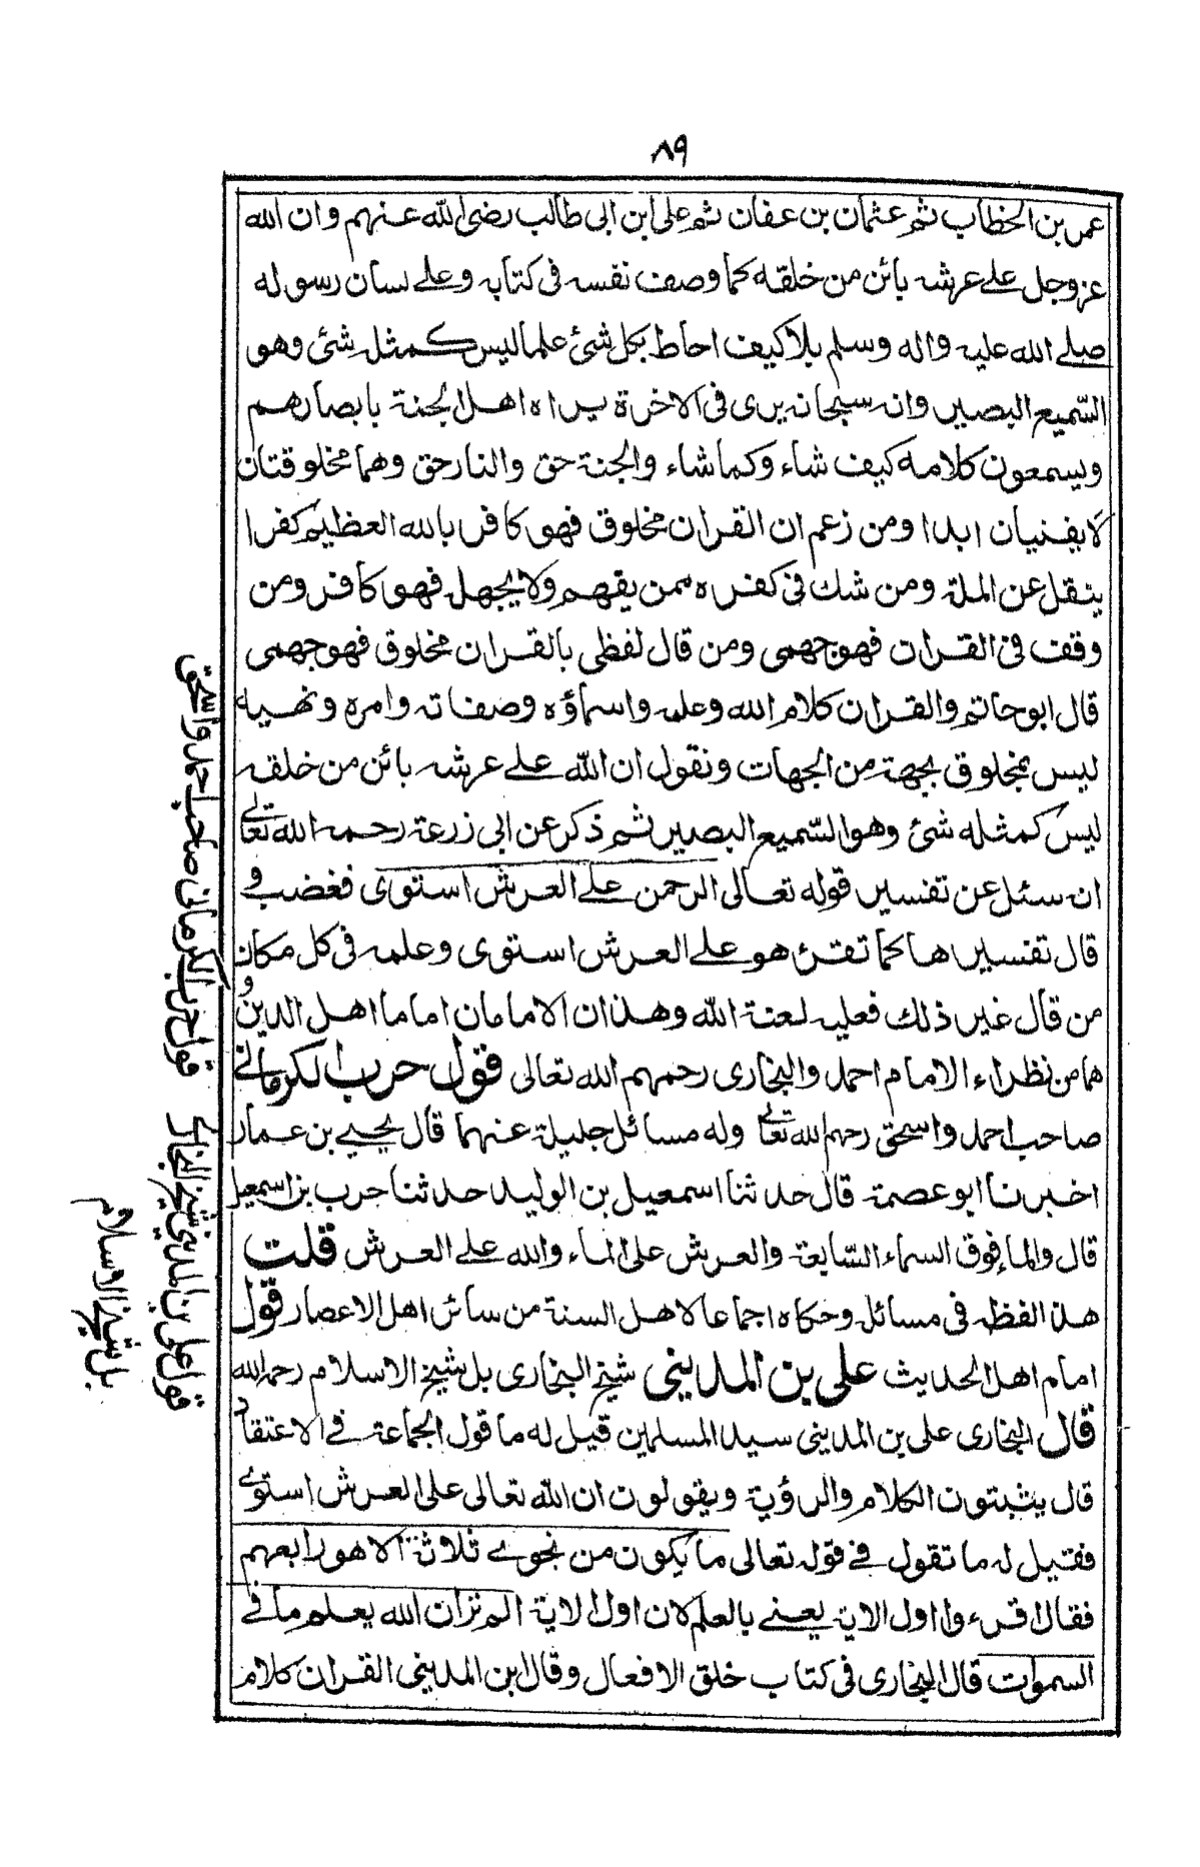 ٨٩
عمر بن الخطاب ثم عثمان بن عفان ثم علي ابن ابى طالب رضى الله عنهم وان الله
عزوجل علے عرشه بائن من خلقه كما وصف نفسه فى كتابه وعلے لسان رسوله
صلے الله عليه واله وسلم بلا كيف احاط بكل شئ علما ليس كمثله شئ وهو
السّميع البصير وانه سبحانه يرى فى الاخرة يراه اهل الجنة بابصارهم
ويسمعون كلامه كيف شاء وكما شاء والجنة حق والنار حق وهما مخلوقتان
لا يفنيان ابدا ومن زعم ان القران مخلوق فهو كافر بالله العظيم كفرا
ينقل عن الملة ومن شك فى كفره ممن يفهم ولا يجهل فهو كافر ومن
وقف فى القران فهو جهمى ومن قال لفظى بالقران مخلوق فهو جهمى
قال ابو حاتم والقران كلام الله وعلمه واسماؤه وصفاته وامره ونهيه
ليس بمخلوق بجهة من الجهات ونقول ان الله علے عرشه بائن من خلقه
ليس كمثله شئ وهو السّميع البصير ثم ذكر عن ابى زرعة رحمه الله تعالے
انه سئل عن تفسير قوله تعالى الرحمن علے العرش استوى فغضب و
قال تفسيرها كما تقرئ هو علے العرش استوى وعلمه فى كل مكان و
من قال غير ذلك فعليه لعنة الله وهذان الامامان اماما اهل الدين و
هما من نظراء الامام احمد والبخارى رحمهم الله تعالى قول حرب الكرمانے
صاحب احمد واسحق رحمهم الله تعالے وله مسائل جليلة عنهما قال يحيے بن عمار
اخبرنا ابو عصمة قال حدثنا اسمعيل بن الوليد حدثنا حرب بن اسمعيل
قال والماء فوق السماء السّابعة والعرش على الماء والله علے العرش قلت
هذا لفظه فى مسائله وحكاه اجماعا لاهل السنة من سائر اهل الاعصار قول
امام اهل الحديث على بن المدينى شيخ البخارى بل شيخ الاسلام رحمه الله
قال البخارى على بن المدينى سيد المسلمين قيل له ما قول الجماعة فے الاعتقاد
قال يثبتون الكلام والرؤية ويقولون ان الله تعالى على العرش استوے
فقيل له ما تقول فے قوله تعالى ما يكون من نجوے ثلاثة الا هو رابعهم
فقال اقرءوا اول الاية يعنے بالعلم لان اول الاية الم تر ان الله يعلم ما فے
السموات قال البخارى فى كتاب خلق الافعال وقال ابن المدينى القران كلام
قول حرب الكرمانى صاحب احمد واسحق
قول على بن المدينى شيخ البخارى
بل شيخ الاسلام